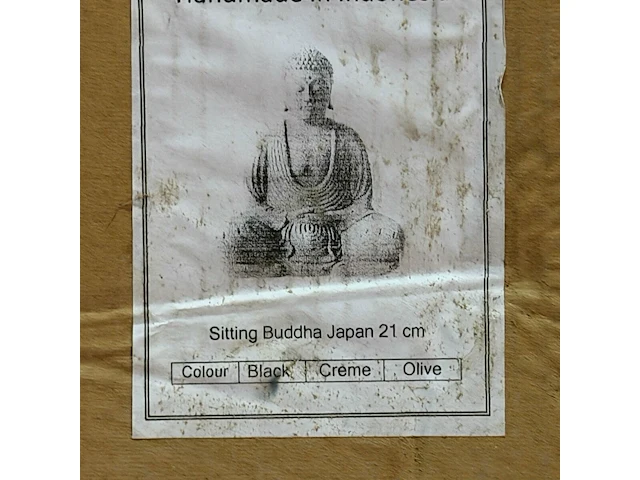 Handmade in
Sitting Buddha Japan 21 cm
Colour Black Creme Olive